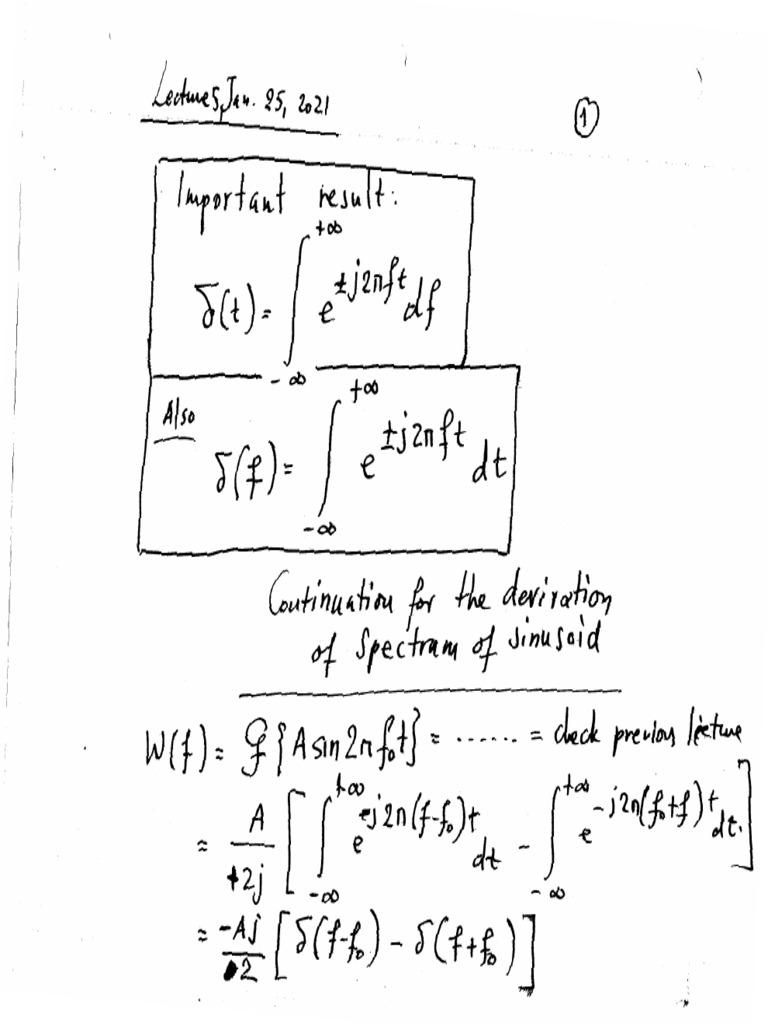 Lecture 5, Jan. 25, 2021
①
Important result:
δ(t) = ∫_{-∞}^{+∞} e^{±j2πft} df
Also
δ(f) = ∫_{-∞}^{+∞} e^{±j2πft} dt
Continuation for the derivation
of Spectrum of sinusoid
W(f) = ℱ{A sin 2πf₀t} = ...... = check previous lecture
= A/+2j [ ∫_{-∞}^{+∞} e^{-j2π(f-f₀)t} dt - ∫_{-∞}^{+∞} e^{-j2π(f₀+f)t} dt. ]
= -Aj/2 [ δ(f-f₀) - δ(f+f₀) ]